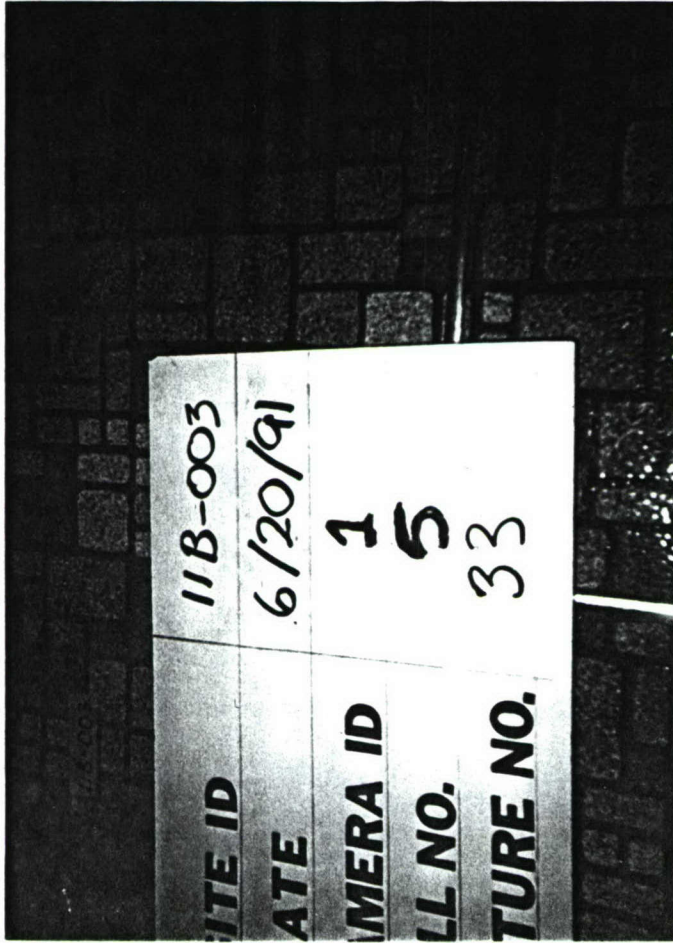 ITE ID 11B-003
ATE 6/20/91
MERA ID 1
LL NO. 5
TURE NO. 33